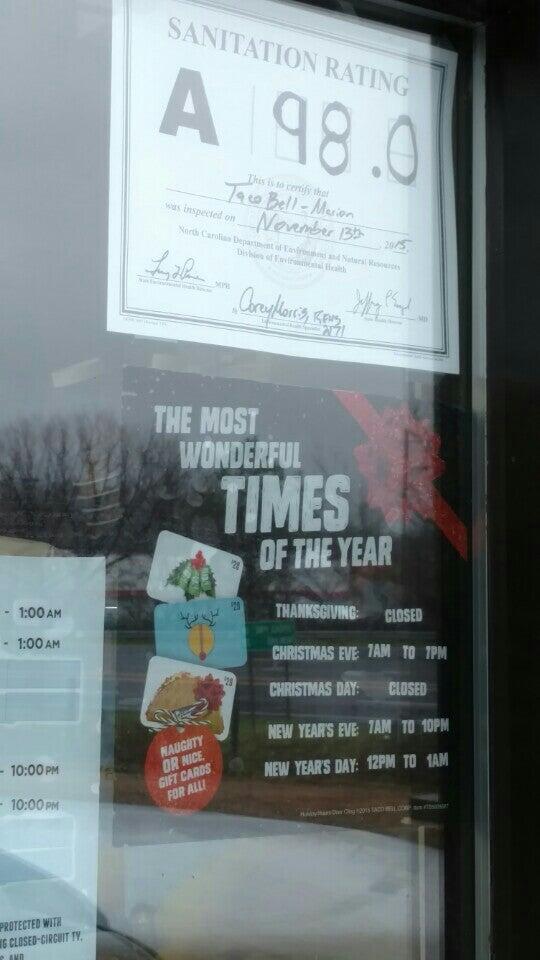 SANITATION RATING
A 98.0
This is to certify that
Taco Bell - Marion
was inspected on November 13th, 2015.
North Carolina Department of Environment and Natural Resources
Division of Environmental Health
MPH
State Environmental Health Director
By Corey Morris, REHS
MD
Environmental Health Specialist
2171
State Health Director
THE MOST
WONDERFUL
TIMES
OF THE YEAR
$20
$20
$20
NAUGHTY
OR NICE,
GIFT CARDS
FOR ALL!
THANKSGIVING: CLOSED
CHRISTMAS EVE: 7AM TO 7PM
CHRISTMAS DAY: CLOSED
NEW YEAR'S EVE: 7AM TO 10PM
NEW YEAR'S DAY: 12PM TO 1AM
Holiday Hours Door Cling ©2015 TACO BELL CORP.
- 1:00 AM
- 1:00 AM
- 10:00 PM
- 10:00 PM
PROTECTED WITH
NG CLOSED-CIRCUIT TV,
S, AND